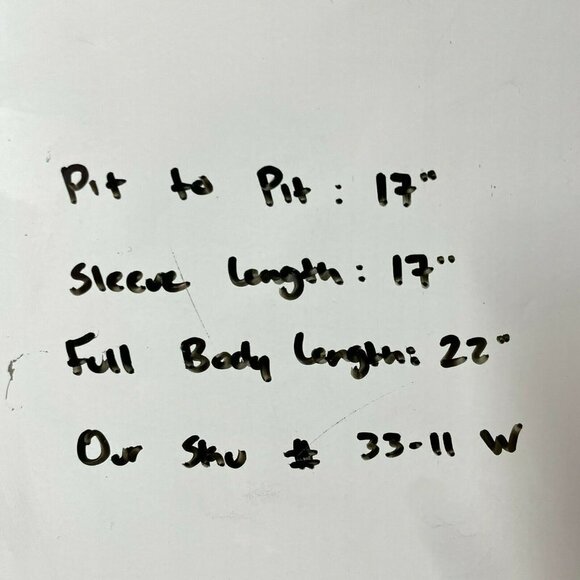 Pit to Pit: 17"
Sleeve Length: 17"
Full Body Length: 22"
Our Sku # 33-11 W